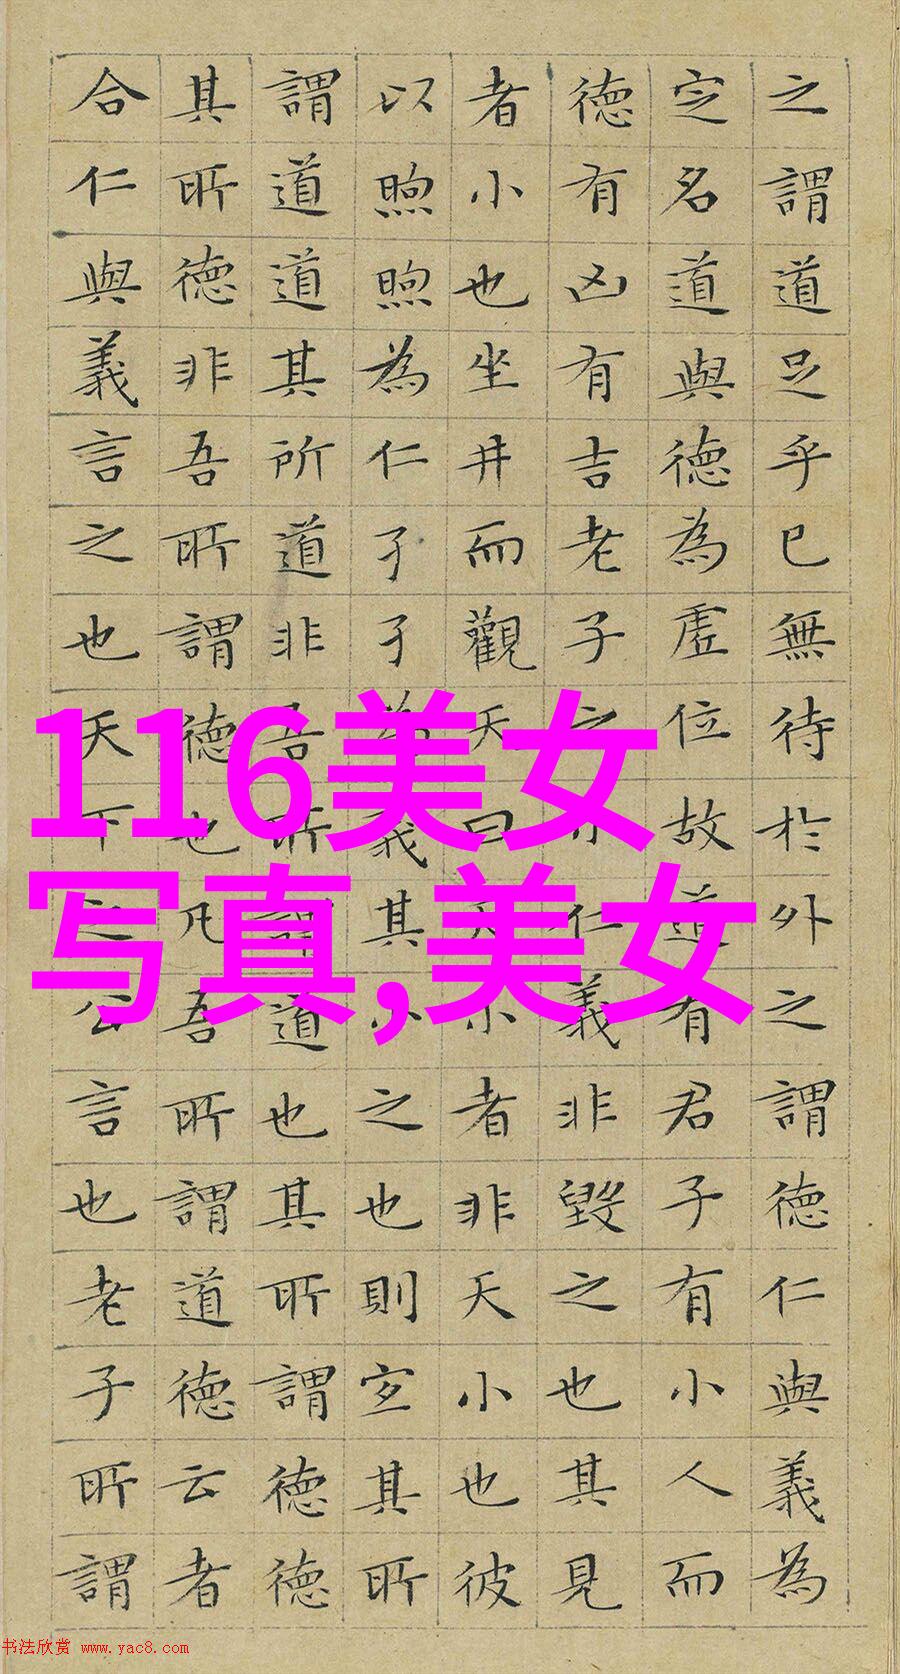 之謂道足乎已無待於外之謂德仁與義為
定名道與德為虛位故道有君子有小人而
德有凶有吉老子之小仁義非毀之也其見
者小也坐井而觀天曰天小者非天小也彼
以煦煦為仁孑孑為義其小之也則宜其所
謂道道其所道非吾所謂道也其所謂德德
其所德非吾所謂德也凡吾所謂道德云者
合仁與義言之也天下之公言也老子所謂
116美女
写真,美女
书法欣赏 www.yac8.com